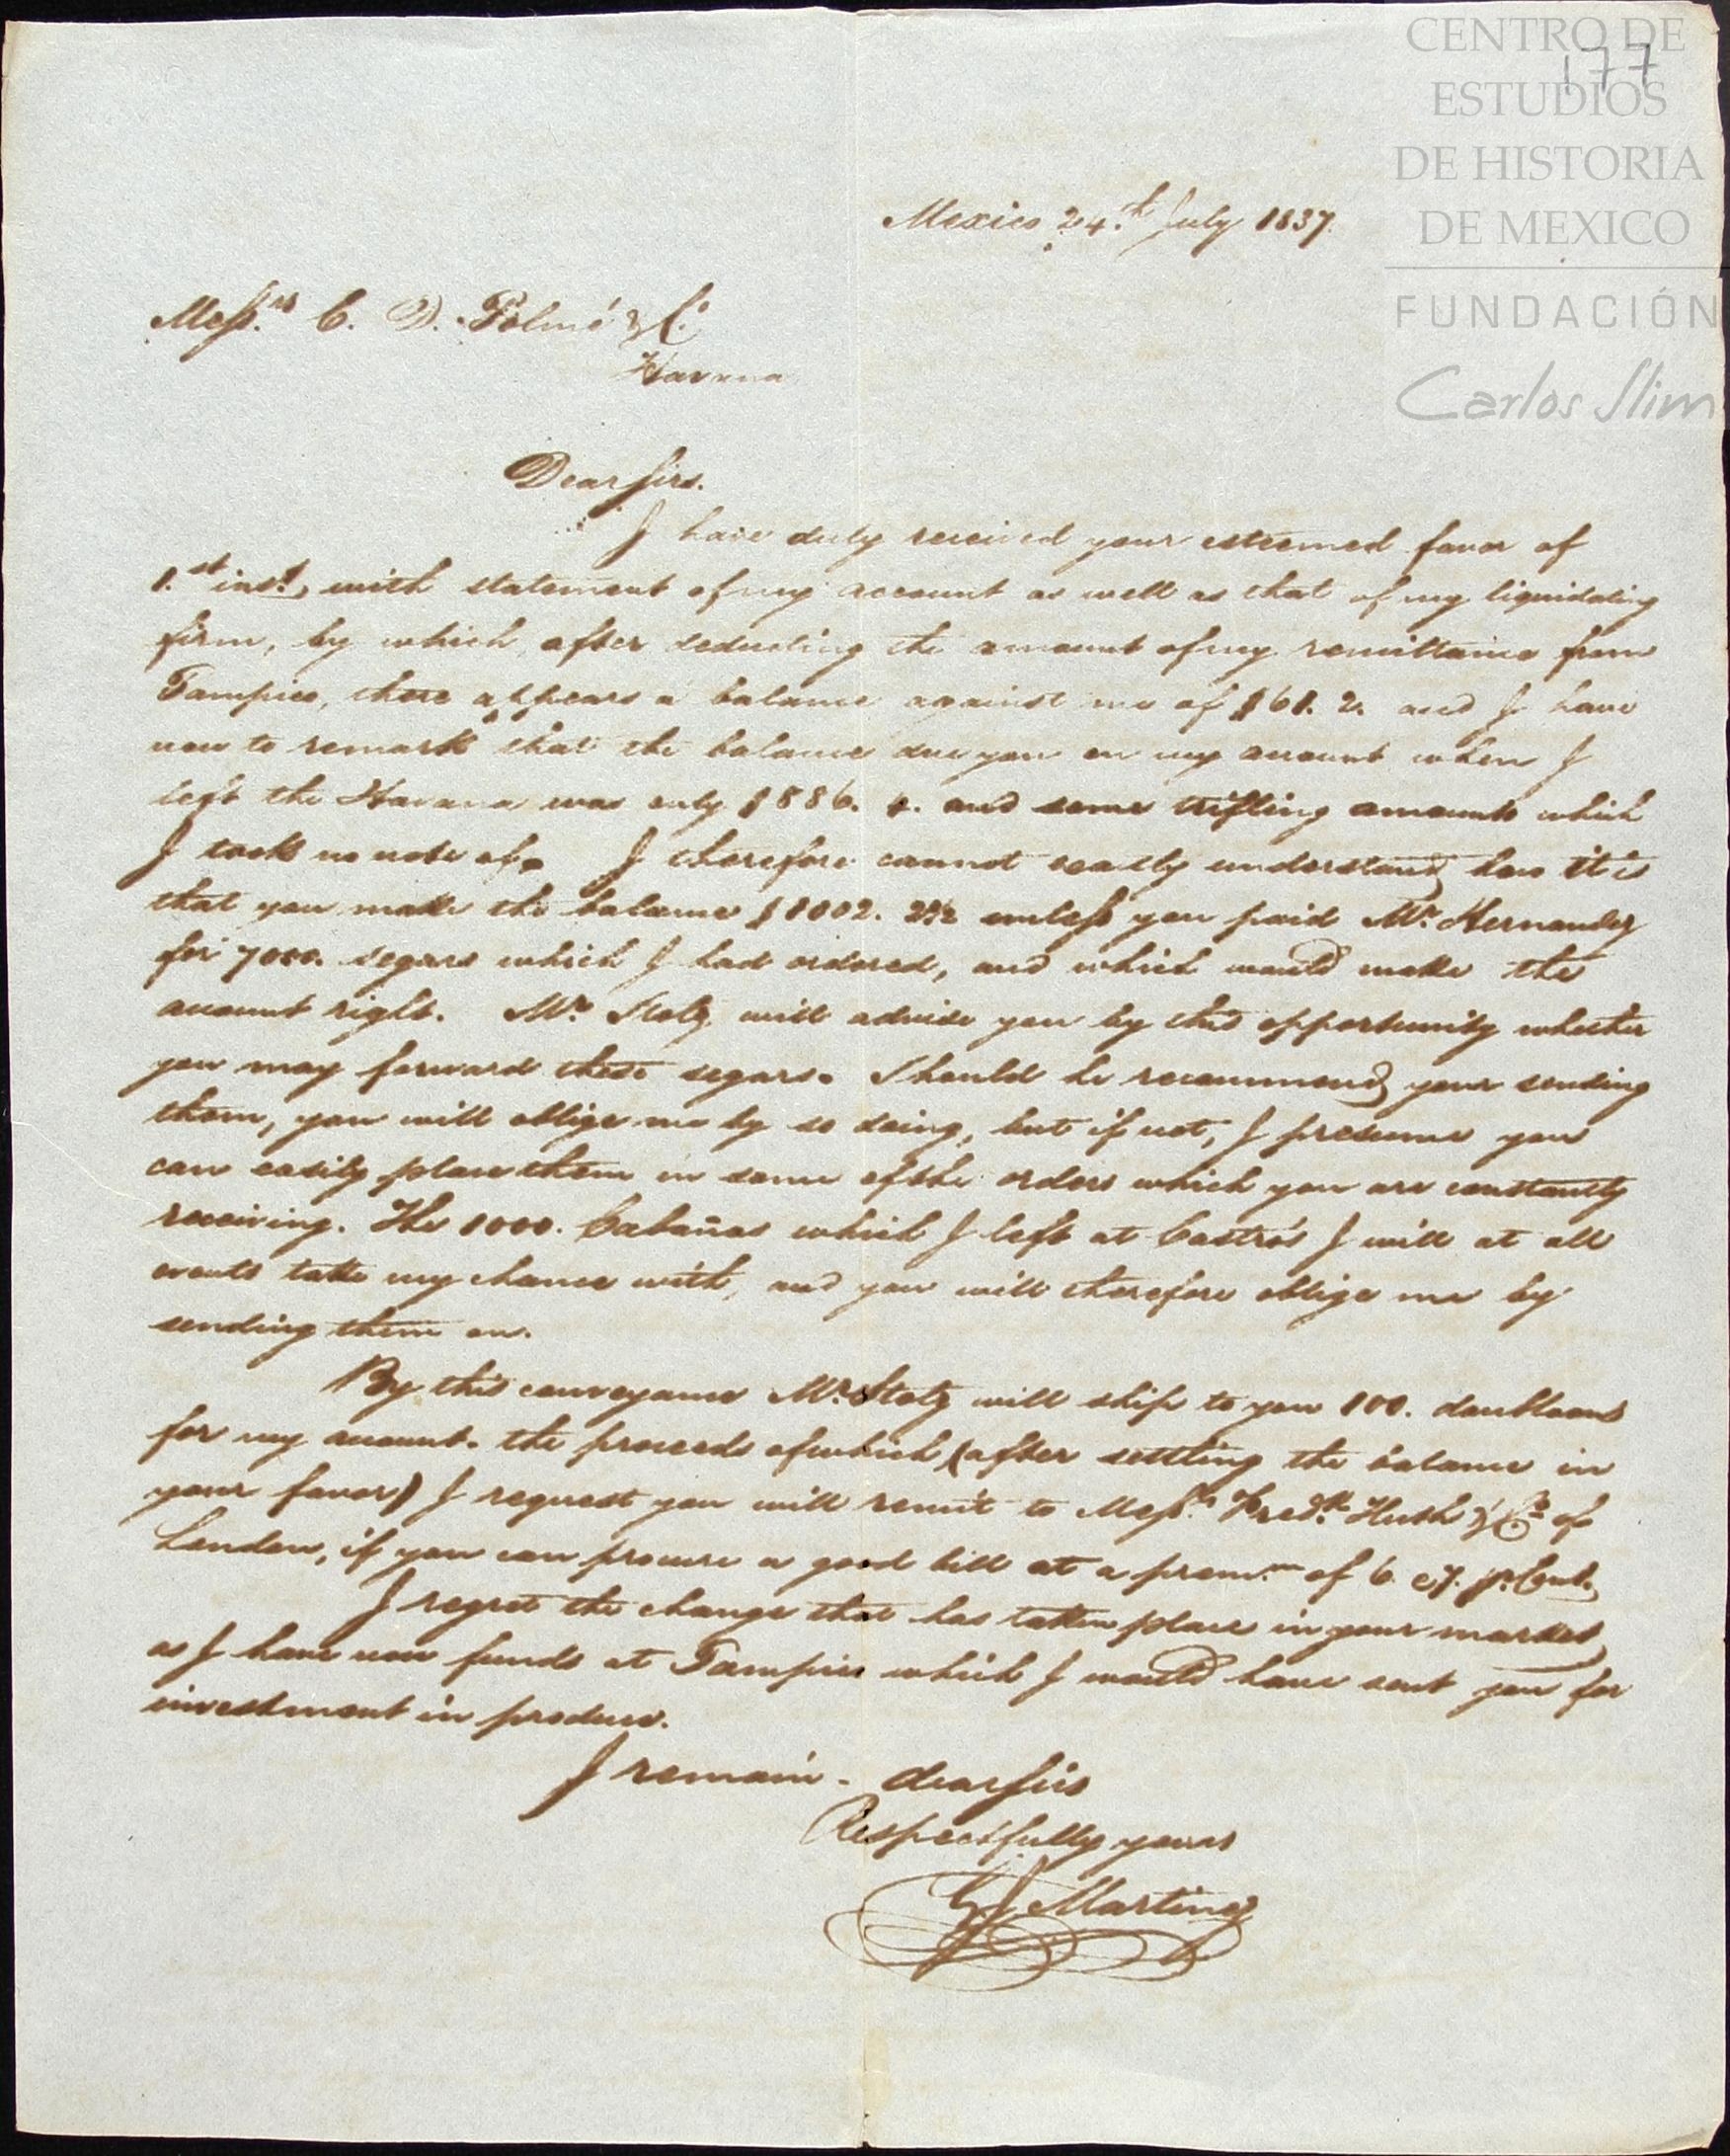 CENTRO DE
ESTUDIOS
DE HISTORIA
DE MEXICO
FUNDACIÓN
Carlos Slim
177
Mexico 24.th July 1837.
Mess.rs C. D. Tolmé & C.o
Havana
Dear Sirs.
I have duly received your esteemed favor of
1.st inst., with statement of my account as well as that of my liquidating
firm, by which, after deducting the amount of my remittance from
Tampico, there appears a balance against me of $61. 2. and I have
now to remark that the balance due you on my account when I
left the Havana was only $886. and some trifling amounts which
I took no note of. I therefore cannot really understand how it is
that you make the balance $1002. 2½ unless you paid Mr. Hernandez
for 7000. segars which I had ordered, and which would make the
account right. Mr. Stolz will advise you by this opportunity whether
you may forward these segars. Should he recommend your sending
them, you will oblige me by so doing, but if not, I presume you
can easily place them in some of the orders which you are constantly
receiving. The 1000. Cabañas which I left at Castro's I will at all
events take my chance with, and you will therefore oblige me by
sending them on.
By this conveyance Mr. Stolz will ship to you 100. doubloons
for my account. the proceeds of which (after settling the balance in
your favor) I request you will remit to Mess.rs Fred.k Huth & Co of
London, if you can procure a good bill at a prem.m of 6. @ 7. p. Cent.
I regret the change that has taken place in your market,
as I have now funds at Tampico which I would have sent you for
investment in produce.
I remain. dear Sirs
Respectfully yours
G J Martinez